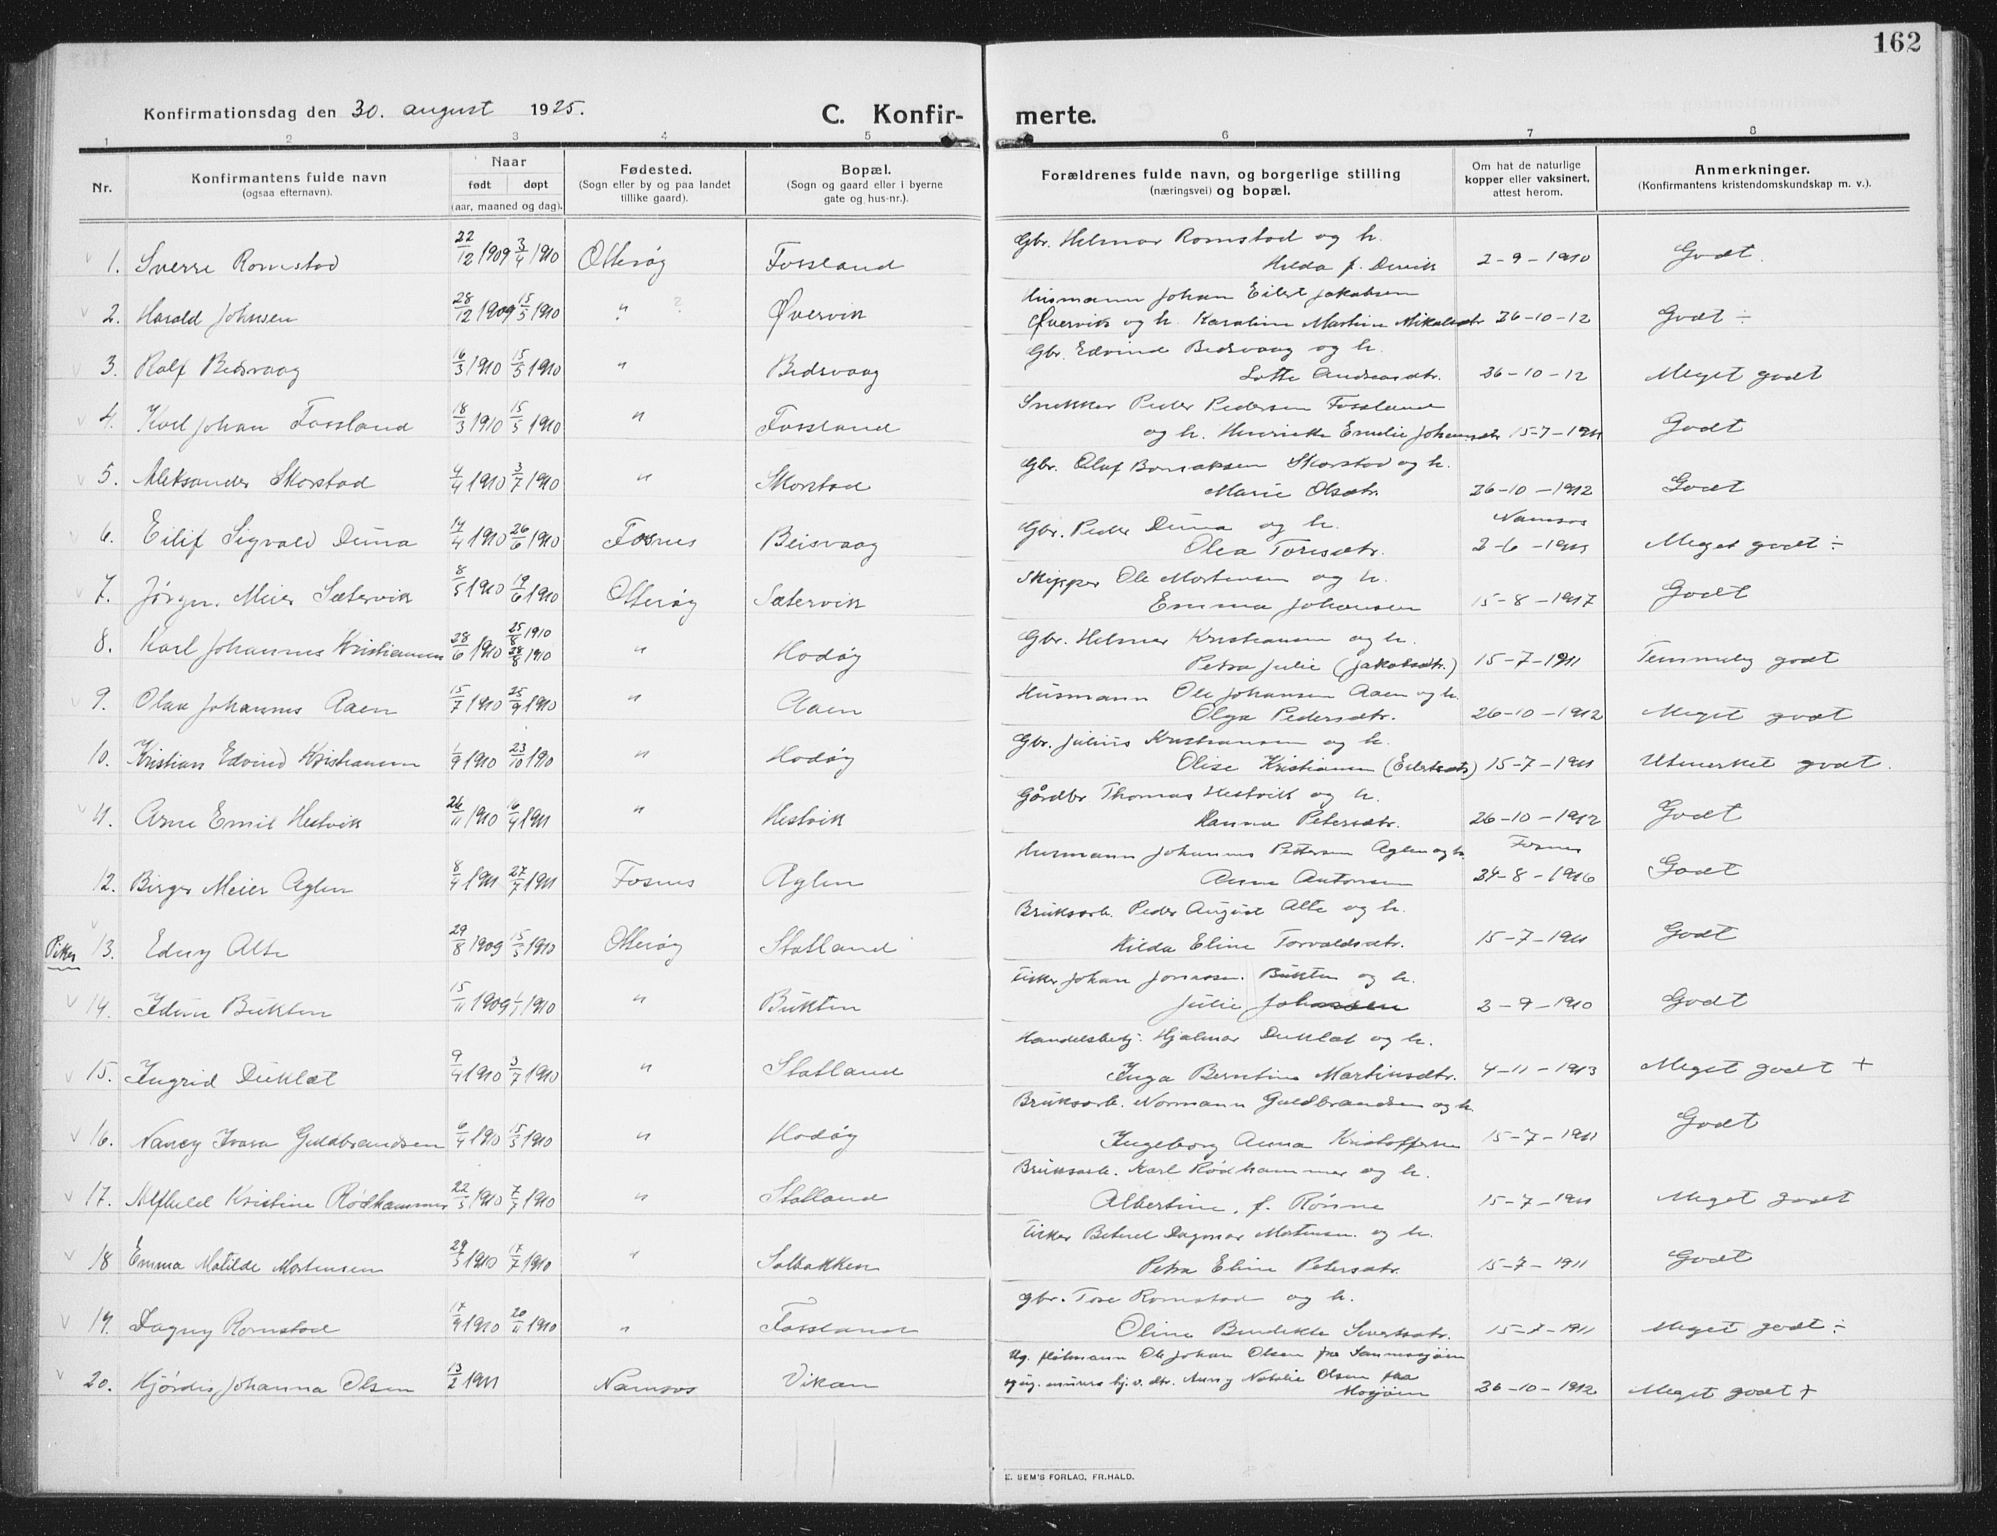 162
Konfirmationsdag den 30. august 1925.
C. Konfir-
merte.
1 2 3 4 5 6 7 8
Nr.
Konfirmantens fulde navn
(ogsaa efternavn).
Naar
født døpt
(aar, maaned og dag).
Fødested.
(Sogn eller by og paa landet
tillike gaard).
Bopæl.
(Sogn og gaard eller i byerne
gate og hus-nr.).
Forældrenes fulde navn, og borgerlige stilling
(næringsvei) og bopæl.
Om hat de naturlige
kopper eller vaksinert,
attest herom.
Anmerkninger.
(Konfirmantens kristendomskundskap m. v.).
Gbr. Helmar Romstad og h.
1. Sverre Romstad 22/12 1909 3/4 1910 Otterøy Fossland Hilda f. Dervik 2-9-1910 Godt.
Husmann Johan Eilert Jakobsen
2. Harald Johnsen 28/12 1909 15/5 1910 " ? Øvervik Øvervik og h. Karoline Martine Mikalsdtr 26-10-12 Godt ÷
Gbr. Edvind Bedsvaag og h.
3. Rolf Bedsvaag 16/3 1910 15/5 1910 " Bedsvaag Lotte Andreasdtr. 26-10-12 Meget godt
Snekker Peder Pedersen Fossland
4. Karl Johan Fossland 18/3 1910 15/5 1910 " Fossland og h. Henrikke Emelie Johannsdtr 15-7-1911 Godt
Gbr. Oluf Skorstad og h.
5. Aleksander Skorstad 4/4 1910 3/7 1910 " Skorstad Marie Olsdtr. 26-10-1912 Godt
Gbr. Peder Duna og h. Namsos
6. Eilif Sigvald Duna 14/4 1910 26/6 1910 Fosnes Beisvaag Olea Toresdtr. Meget godt ÷
Skipper Ole Mortensen og h.
7. Jørgen Meier Sætervik 8/5 1910 19/6 1910 Otterøy Sætervik Emma Johansen 15-8-1917 Godt
25/8 1910
Gbr. Helmer Kristiansen og h.
8. Karl Johannes Kristiansen 28/6 1910 28/8 1910 " Hodøy Petra Julie (Jakobsdtr.) 15-7-1911 Temmelig godt
Husmann Ole Johansen Aaen og h.
9. Olav Johannes Aaen 15/7 1910 25/9 1910 " Aaen Olga Pedersdtr. 26-10-1912 Meget godt
Gbr. Julius Kristiansen og h.
10. Kristian Edvind Kristiansen 1/9 1910 23/10 1910 " Hodøy Olise Kristiansen 15-7-1911 Utmerket godt.
Gårdbr Thomas Hestvik og h.
11. Arne Emil Hestvik 26/11 1910 16/4 1911 " Hestvik Hanna Petersdtr. 26-10-1912 Godt
Husmann Johannes Pettersen Aglen og h. Fosnes
12. Birger Meier Aglen 8/4 1911 27/7 1911 Fosnes Aglen Anna Antonsen 24-8-1916 Godt
Bruksarb. Peder August Alte og h.
Piker 13. Edny Alte 29/8 1909 15/5 1910 Otterøy Statland Hilda Eline Torvaldsdtr. 15-7-1911 Godt
Fisker Johan Jonassen Bukten og h.
14. Idun Bukten 15/11 1909 1/1 1910 " Bukten Julie Johansen 2-9-1910 Godt
Handelsbetj. Hjalmar Duklæt og h.
15. Ingrid Duklæt 9/4 1910 3/7 1910 " Statland Inga Berntine Martinsdtr. 4-11-1913 Meget godt +
Bruksarb. Normann Guldbrandsen og h.
16. Nancy Ivara Guldbrandsen 6/4 1910 15/5 1910 " Hodøy Ingeborg Anna Kristoffersen 15-7-1911 Godt
Bruksarb. Karl Rødhammer og h.
17. Alfhild Kristine Rødhammer 22/5 1910 7/7 1910 " Statland Albertine, f. Rønne 15-7-1911 Meget godt
Fisker Dagmar Mortensen og h.
18 Emma Matilde Mortensen 29/5 1910 17/7 1910 " Solbakken Petra Eline Petersdtr. 15-7-1911 Godt
gbr. Tore Romstad og h.
19. Dagny Romstad 17/9 1910 20/11 1910 " Fossland Oline Bendikte Sivertsdtr. 15-7-1911 Meget godt ÷
Ug. fløtmann Ole Johan Olsen fra Sannesjøen
20. Hjørdis Johanna Olsen 13/2 1911 Namsos Vikan Natalie Olsen fra Mosjøen 26-10-1912 Meget godt +
E. SEM'S FORLAG, FR.HALD.